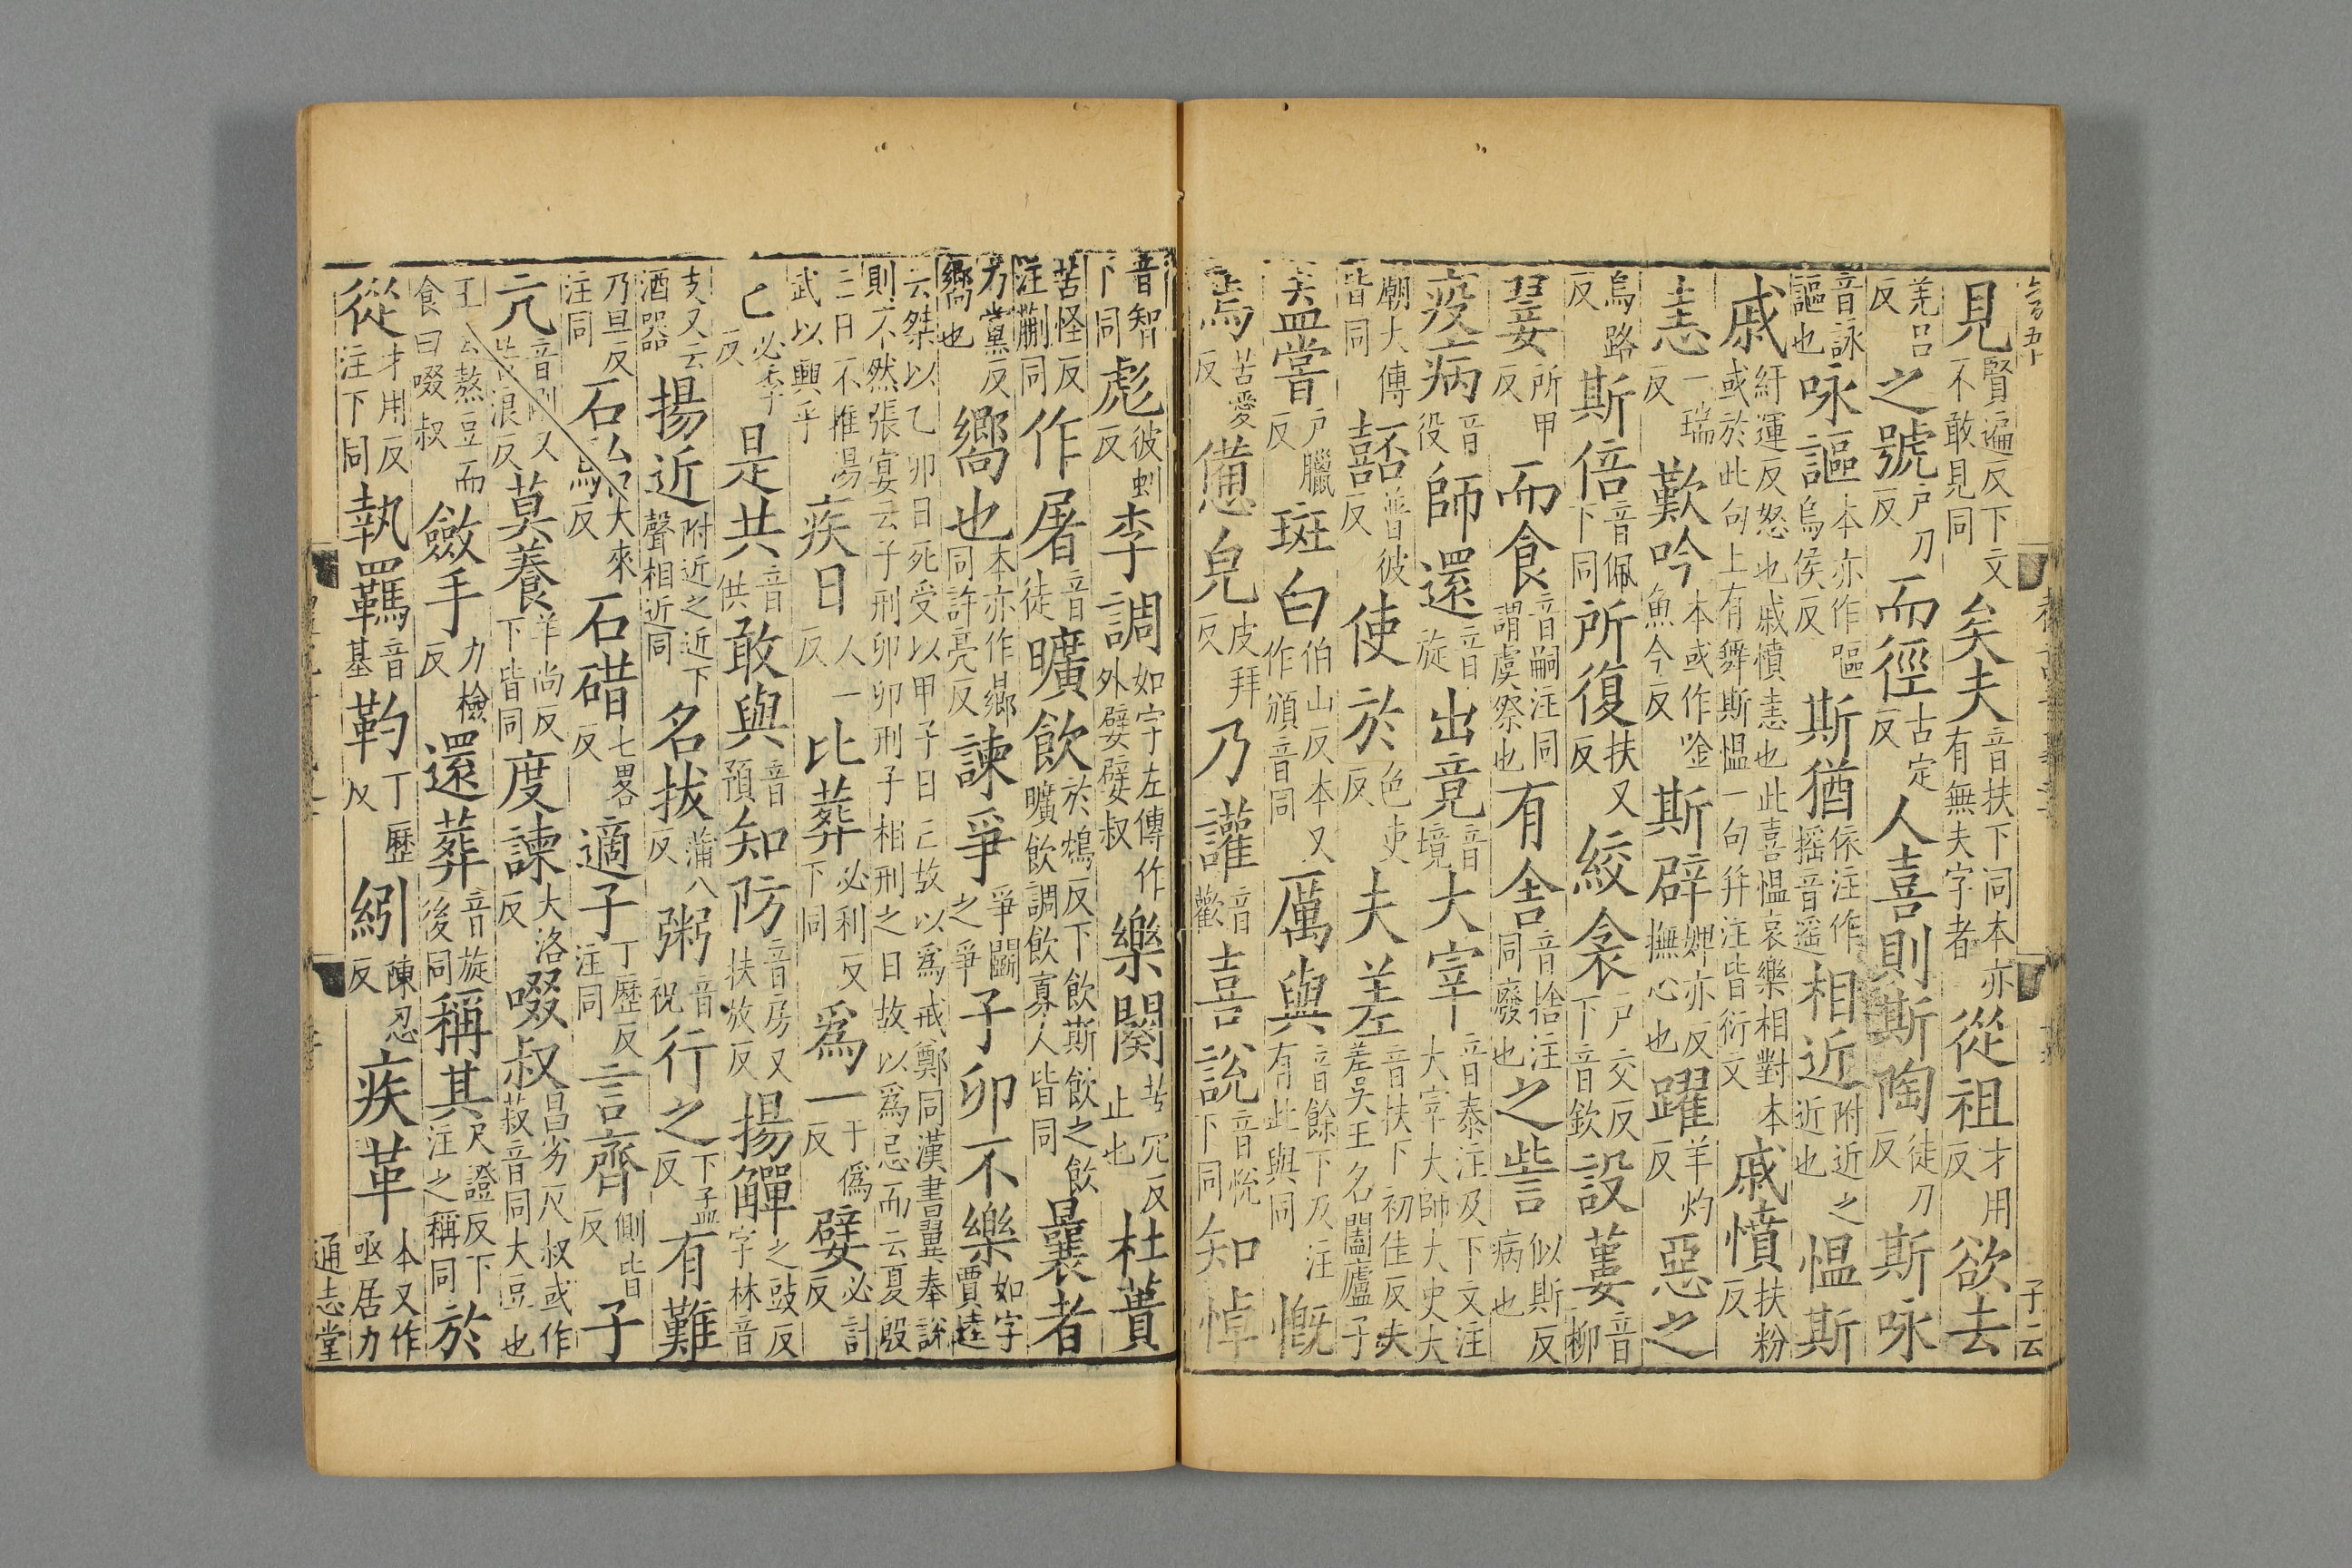 見賢遍反下文不敢見同矣夫音扶下同本亦有無夫字者從祖才用反欲去
羌呂反之號戶刀反而徑古定反人喜則斯陶徒刀反斯咏
音詠謳也咏謳本亦作嘔烏侯反斯猶依注作摇音遥相近附近之近也愠斯
戚紆運反怒也戚憤恚也此喜愠哀樂相對本或於此句上有舞斯愠一句并注皆衍文戚憤扶粉反
恚一瑞反歎吟本或作唫魚今反斯辟婢亦反撫心也躍羊灼反惡之
烏路反斯倍音佩下同所復扶又反絞衾戶交反下音欽設蔞音柳
翣所甲反而食音嗣注同謂虞祭也有舍音捨注同廢也之訾似斯反病也
疫病音役師還音旋出竟音境大宰音泰注及下文注大宰大師大史大
廟大傳皆同嚭普彼反使於色吏反夫差音扶下初佳反夫差吳王名闔廬子
盍嘗戶臘反斑白伯山反本又作頒音同厲與音餘下及注有此與同慨
焉苦愛反憊皃皮拜反乃讙音歡喜說音悅下同知悼
音智下同彪彼虯反李調如字左傳作外嬖嬖叔樂闋苦穴反止也杜蕢
苦怪反注蒯同作屠音徒曠飲於鴆反下飲斯飲之飲曠飲調飲寡人皆同曩者
乃黨反嚮也嚮也本亦作鄉同許亮反諫爭爭鬭之爭子卯不樂如字賈逵
云桀以乙卯日死受以甲子日亡故以為戒鄭同漢書翼奉說則不然張宴云子刑卯卯刑子相刑之日故以為忌而云夏殷
亡日不推湯武以興乎疾日人一反比葬必利反下同為一于偽反嬖必計反
匕必季反是共音供敢與音預知防音房又扶放反揚觶之豉反字林音
支又云酒器揚近附近之近下聲相近同名拔蒲八反粥音祝行之下孟反有難
乃旦反注同石駘大來反石碏七畧反適子丁歷反注同言齊側皆反子
亢音剛又苦浪反莫養羊尚反下皆同度諫大洛反啜叔昌劣反叔或作菽音同大豆也
王云熬豆而食曰啜叔斂手力檢反還葬音旋後同稱其尺證反下注之稱同於
從才用反注下同執羈音基靮丁歷反紖陳忍反疾革本又作亟居力
子云
通志堂